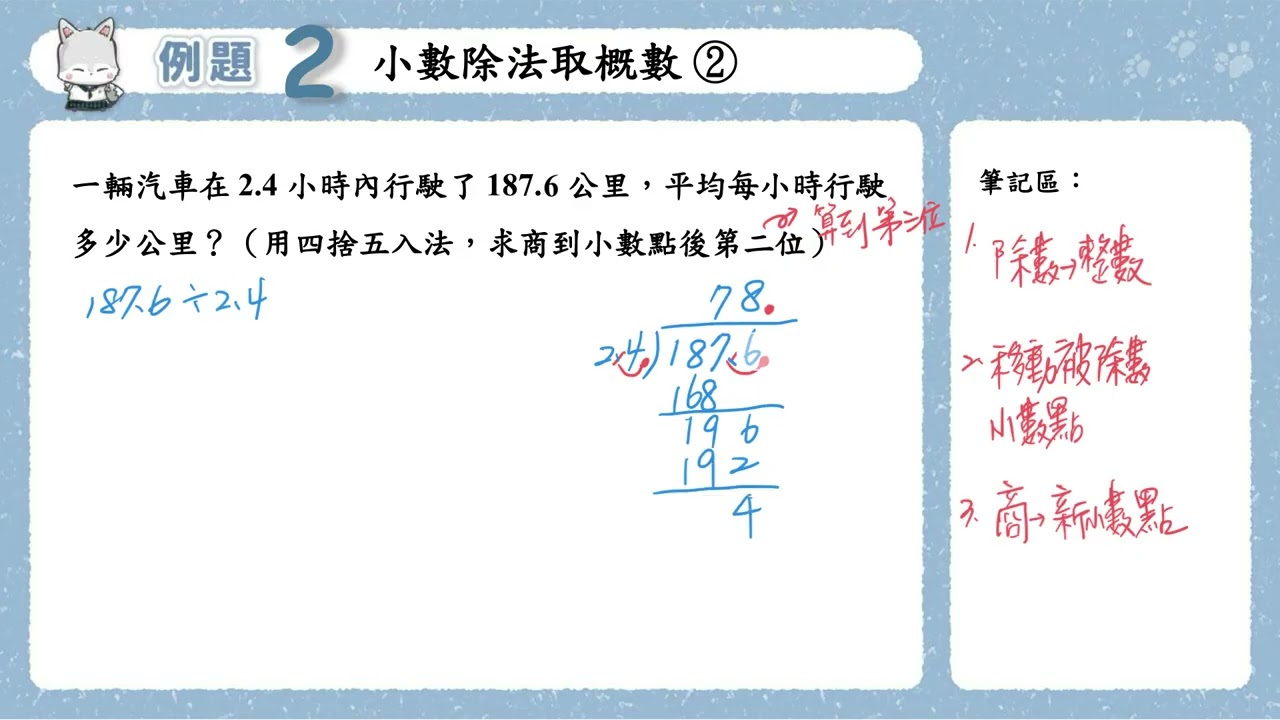 例題 2 小數除法取概數 ②
一輛汽車在 2.4 小時內行駛了 187.6 公里，平均每小時行駛
多少公里？（用四捨五入法，求商到小數點後第二位）
187.6 ÷ 2.4
78.
2.4 187.6
168
196
192
4
筆記區：
1. 除數→整數
2. 移動被除數
小數點
3. 商→新小數點